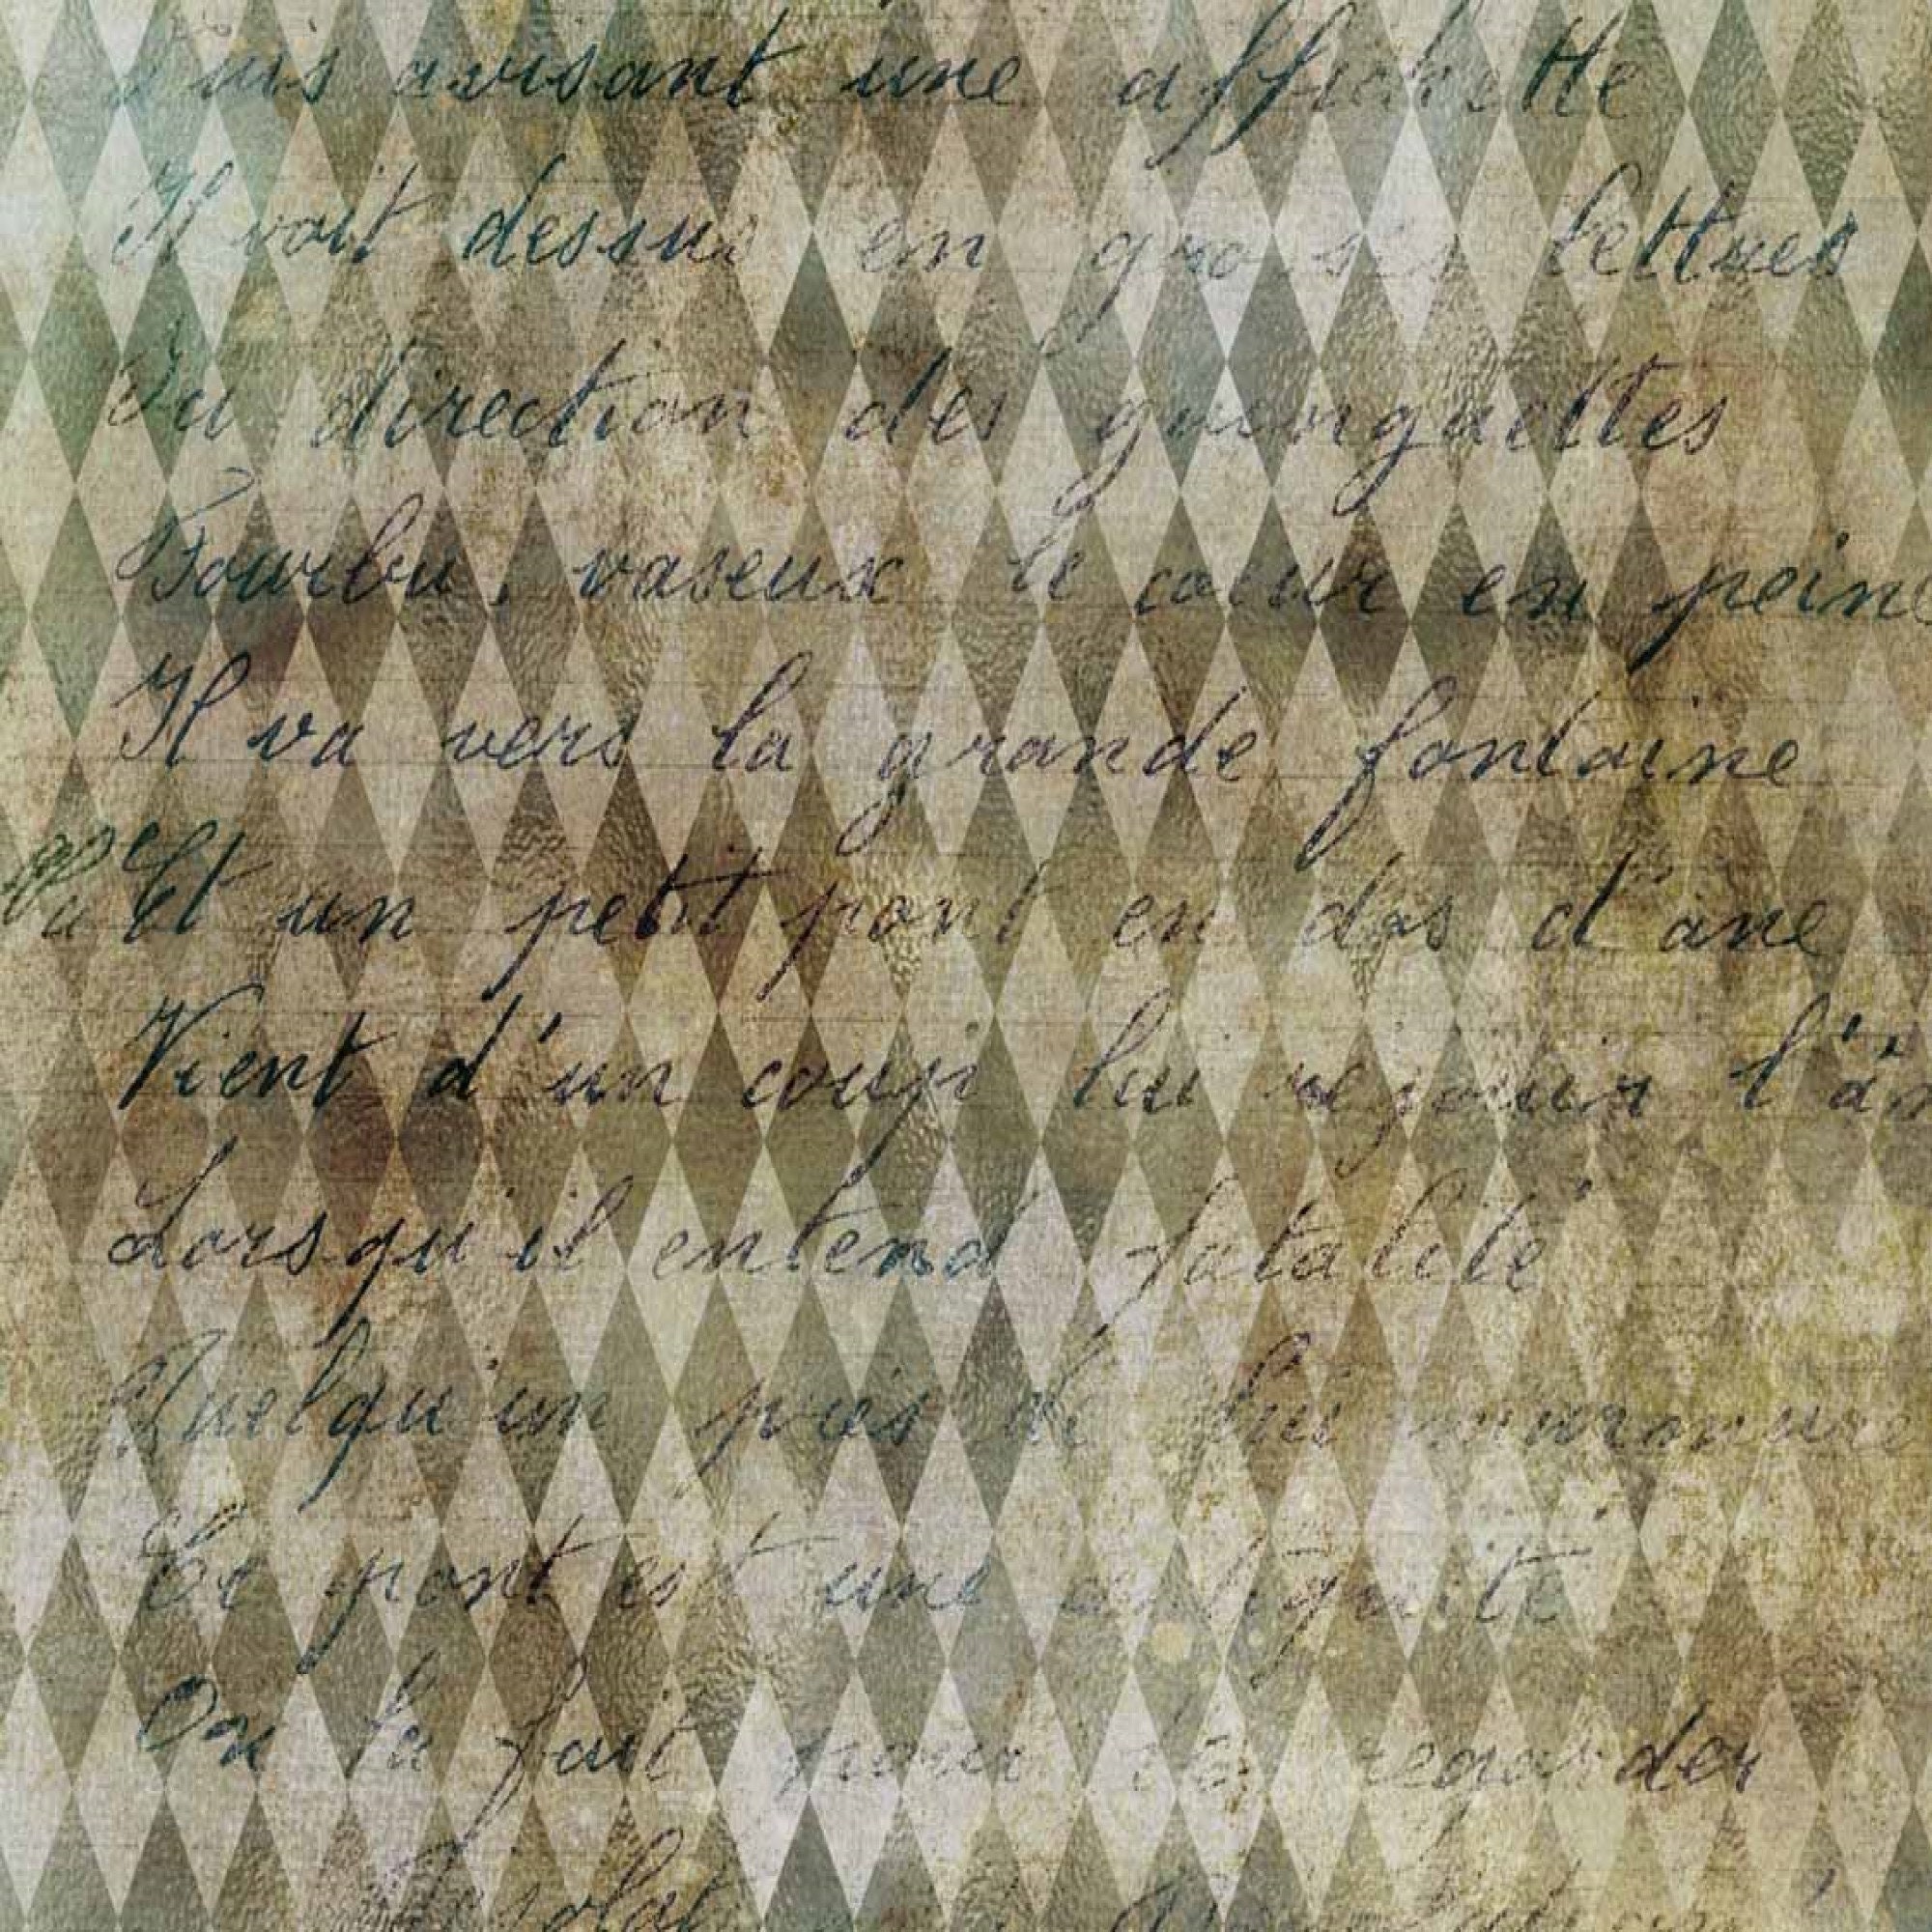 Puis avisant une affichette
Il voit dessus en grosses lettres
Ou direction des guinguettes
Fourbu, vaseux le cœur en peine
Il va vers la grande fontaine
Et un petit pont en dos d'ane
Vient d'un coup lui réjouir l'â
Lorsqu'il entend fatalité
Quelqu'un près de lui murmure
Ce pont est une
On le fait pour regarder